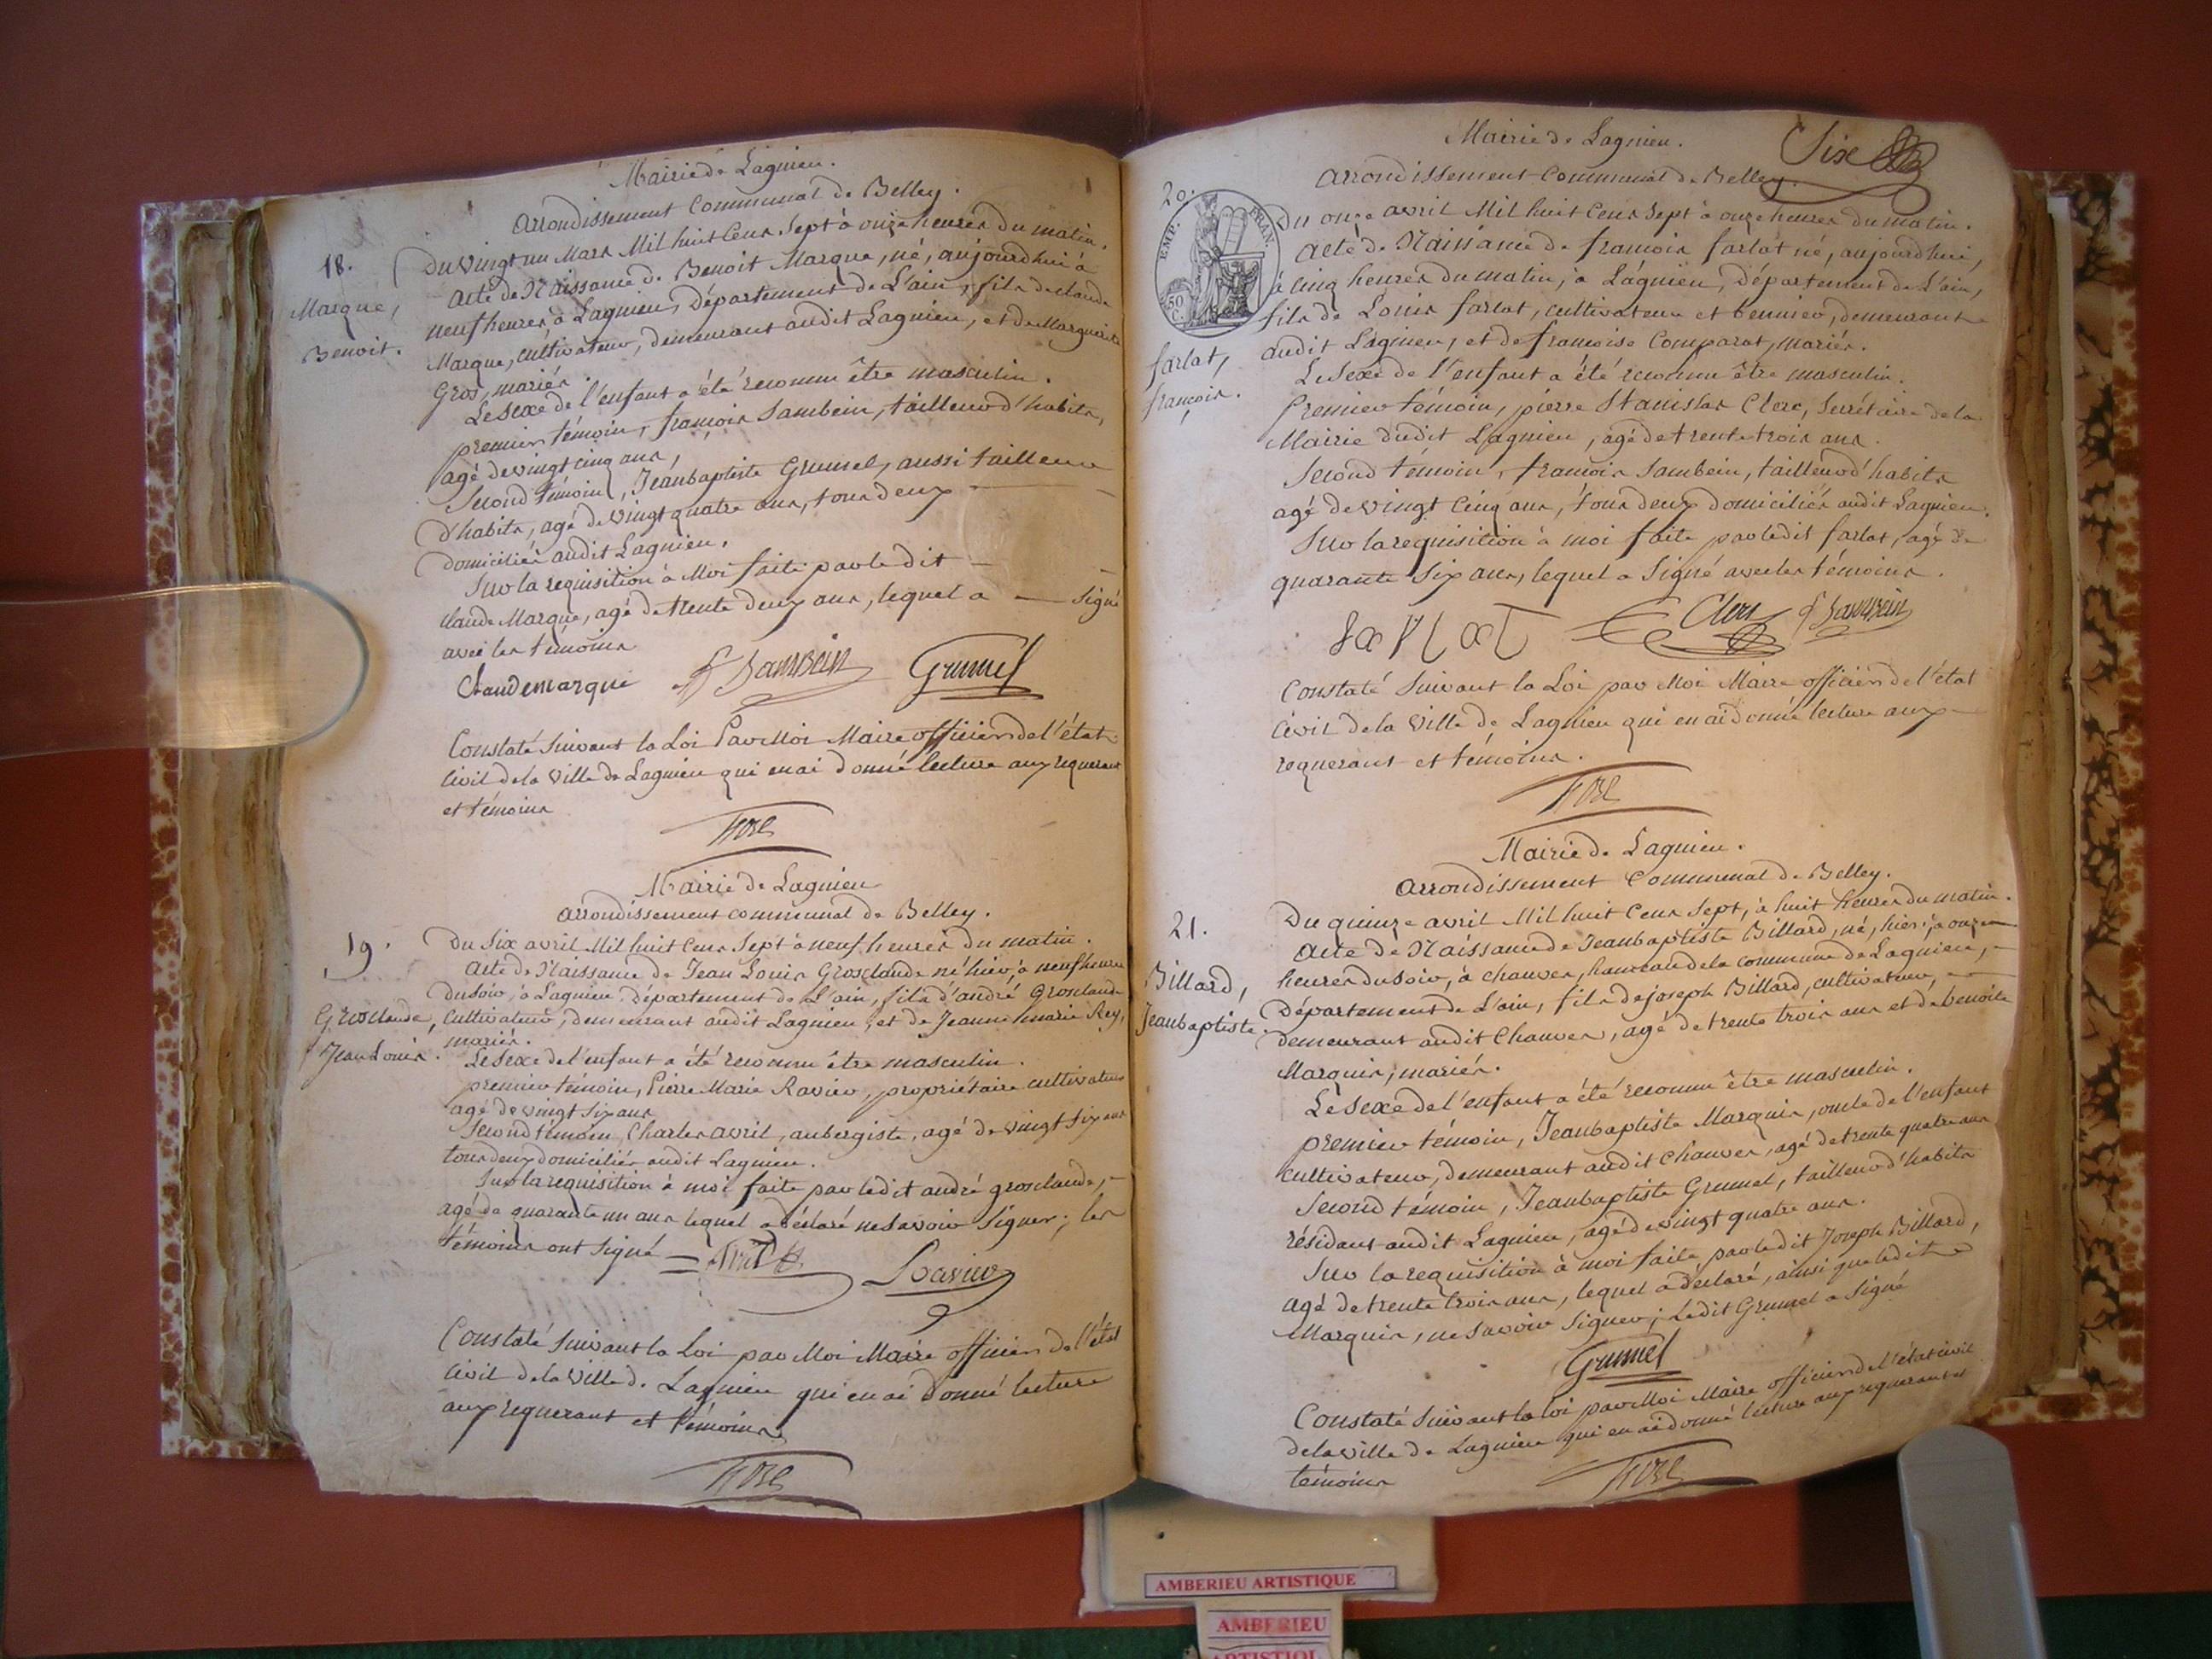 Mairie de Lagnieu.
arrondissement Communal de Belley.
18.
Marque,
Benoit.
Du vingt un Mars Mil huit Cens Sept à onze heures du matin.
Acte de Naissance de Benoit Marque, né, aujourdhui à
neuf heures à Lagnieu, Département de L'ain, fils de claude
Marque, cultivateur, demeurant audit Lagnieu, et de Marguerite
Gros, mariés.
Le sexe de l'enfant a été reconnu être masculin.
premier témoin, françois Sambein, tailleur d'habits,
agé de vingt cinq ans,
Second témoin, Jeanbaptiste Grumel, aussi tailleur
d'habits, agé de vingt quatre ans, tous deux
domiciliés audit Lagnieu.
Sur la requisition à Moi faite par le dit
claude Marque, agé de trente deux ans, lequel a signé
avec les témoins
Claudemarque f Sambein Grumel
Constaté suivant la Loi Par Moi Maire officier de l'état
Civil de la Ville de Lagnieu qui en ai donné lecture aux requerant
et témoins
Mairie de Lagnieu
arrondissement communal de Belley.
19.
Grosclaude,
Jean Louis.
Du Six avril Mil huit Cens Sept à neuf heures du matin.
Acte de Naissance de Jean Louis Grosclaude né hier, à neuf heures
du soir, à Lagnieu, Département de L'ain, fils d'andré Grosclaude
Cultivateur, demeurant audit Lagnieu, et de Jeanne marie Rey,
mariés.
Le sexe de l'enfant a été reconnu être masculin.
premier témoin, Pierre Marie Ravier, propriétaire cultivateur
agé de vingt six ans
Second témoin, Charles avril, aubergiste, agé de vingt six ans
tous deux domiciliés audit Lagnieu.
Sur la requisition à moi faite par ledit andré grosclaude,
agé de quarante un ans lequel a déclaré ne savoir signer; les
témoins ont signé avril Ravier
Constaté suivant la Loi par Moi Maire officier de l'état
Civil de la Ville de Lagnieu qui en ai donné lecture
aux requerant et témoins
Mairie de Lagnieu.
Six
arrondissement Communal de Belley.
20.
EMP. FRAN.
50 C.
farlat,
françois.
Du onze avril Mil huit Cens Sept à onze heures du matin.
Acte de Naissance de françois farlat né, aujourdhui,
à cinq heures du matin, à Lagnieu, Département de L'ain,
fils de Louis farlat, cultivateur et bennier, demeurant
audit Lagnieu, et de françoise Comparat, mariés.
Le sexe de l'enfant a été reconnu être masculin.
Premier témoin, pierre Stanislas Clerc, Secrétaire de la
Mairie dudit Lagnieu, agé de trente trois ans.
Second témoin, françois Sambein, tailleur d'habits
agé de vingt cinq ans, tous deux domiciliés audit Lagnieu.
Sur la requisition à moi faite par ledit farlat, agé de
quarante six ans, lequel a signé avec les témoins.
farlat Clerc f Sambein
Constaté suivant la Loi par Moi Maire officier de l'état
Civil de la Ville de Lagnieu qui en ai donné lecture aux
requerant et témoins.
Mairie de Lagnieu.
arrondissement Communal de Belley.
21.
Billard,
Jeanbaptiste.
Du quinze avril Mil huit Cens Sept, à huit heures du matin.
Acte de Naissance de Jeanbaptiste Billard, né, hier, à onze
heures du soir, à chauves, hameau de la commune de Lagnieu,
Département de L'ain, fils de joseph Billard, cultivateur,
demeurant audit Chauves, agé de trente trois ans et de benoite
Marquis, mariés.
Le sexe de l'enfant a été reconnu être masculin.
premier témoin, Jeanbaptiste Marquis, oncle de l'enfant
cultivateur, demeurant audit Chauves, agé de trente quatre ans
Second témoin, Jeanbaptiste Grumel, tailleur d'habits
résidant audit Lagnieu, agé de vingt quatre ans.
Sur la requisition à moi faite par ledit Joseph Billard,
agé de trente trois ans, lequel a déclaré, ainsi que ledit
Marquis, ne savoir signer; Ledit Grumel a signé
Grumel
Constaté suivant la loi par Moi Maire officier de l'état civil
de la ville de Lagnieu qui en ai donné lecture aux requerant et
témoins
AMBERIEU ARTISTIQUE
AMBERIEU
ARTISTIQUE